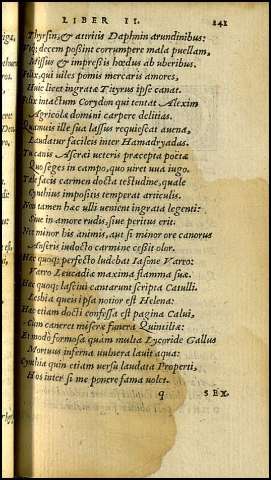 LIBER II. 241
Thyrsin, & attritis Daphnin arundinibus:
Vtq; decem possint corrumpere mala puellam,
Missus & impressis hœdus ab uberibus.
Felix, qui uiles pomis mercaris amores,
Huic licet ingratæ Tityrus ipse canat.
Felix intactum Corydon qui tentat Alexim
Agricolæ domini carpere delitias.
Quamuis ille sua lassus requiescat auena,
Laudatur facileis inter Hamadryadas.
Tu canis Ascræi ueteris præcepta poëtæ
Quo seges in campo, quo uiret uua iugo.
Tale facis carmen docta testudine, quale
Cynthius impositis temperat articulis.
Non tamen hæc ulli uenient ingrata legenti:
Siue in amore rudis, siue peritus erit.
Nec minor his animis, aut si minor ore canorus
Anseris indocto carmine cessit olor.
Hæc quoq; perfecto ludebat Iasone Varro:
Varro Leucadiæ maxima flamma suæ.
Hæc quoq; lasciui cantarunt scripta Catulli.
Lesbia queis ipsa notior est Helena:
Hæc etiam docti confessa est pagina Calui,
Cum caneret miseræ funera Quintiliæ:
Et modò formosa quam multa Lycoride Gallus
Mortuus inferna uulnera lauit aqua:
Cynthia quin etiam uersu laudata Properti,
Hos inter si me ponere fama uolet.
q SEX.